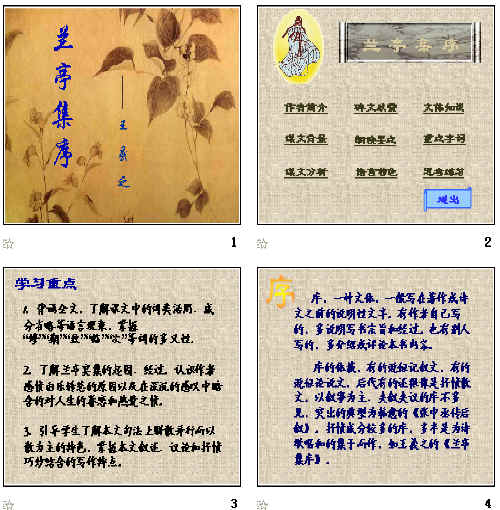 兰亭集序
——王羲之
1
兰亭集序
作者简介 碑文欣赏 文体知识
课文背景 朗读要点 重点字词
课文分析 语言特色 思考练习
退出
2
学习重点
1. 背诵全文,了解课文中的词类活用、成
分省略等语言现象,掌握
等词的多义性。
2. 了解兰亭宴集的起因、经过,认识作者
感情由乐转悲的原因以及在深沉的感叹中暗
含的对人生的眷恋和热爱之情。
3. 引导学生了解本文句法上骈散并行而以
散为主的特色,掌握本文叙述、议论和抒情
巧妙结合的写作特点。
3
序
序,一种文体,一般写在著作或诗
文之前的说明性文字。有作者自己写
的,多说明写书宗旨和经过。也有别人
写的,多介绍或评论本书内容。
序的体裁,有的近似记叙文,有的
近似论说文,后代有的还很像是抒情散
文。以叙事为主,夹叙夹议的序不多
见,突出的典型为韩愈的《张中丞传后
叙》。抒情成分较多的序,多半是为诗
歌唱和的集子而作,如王羲之的《兰亭
集序》。
4